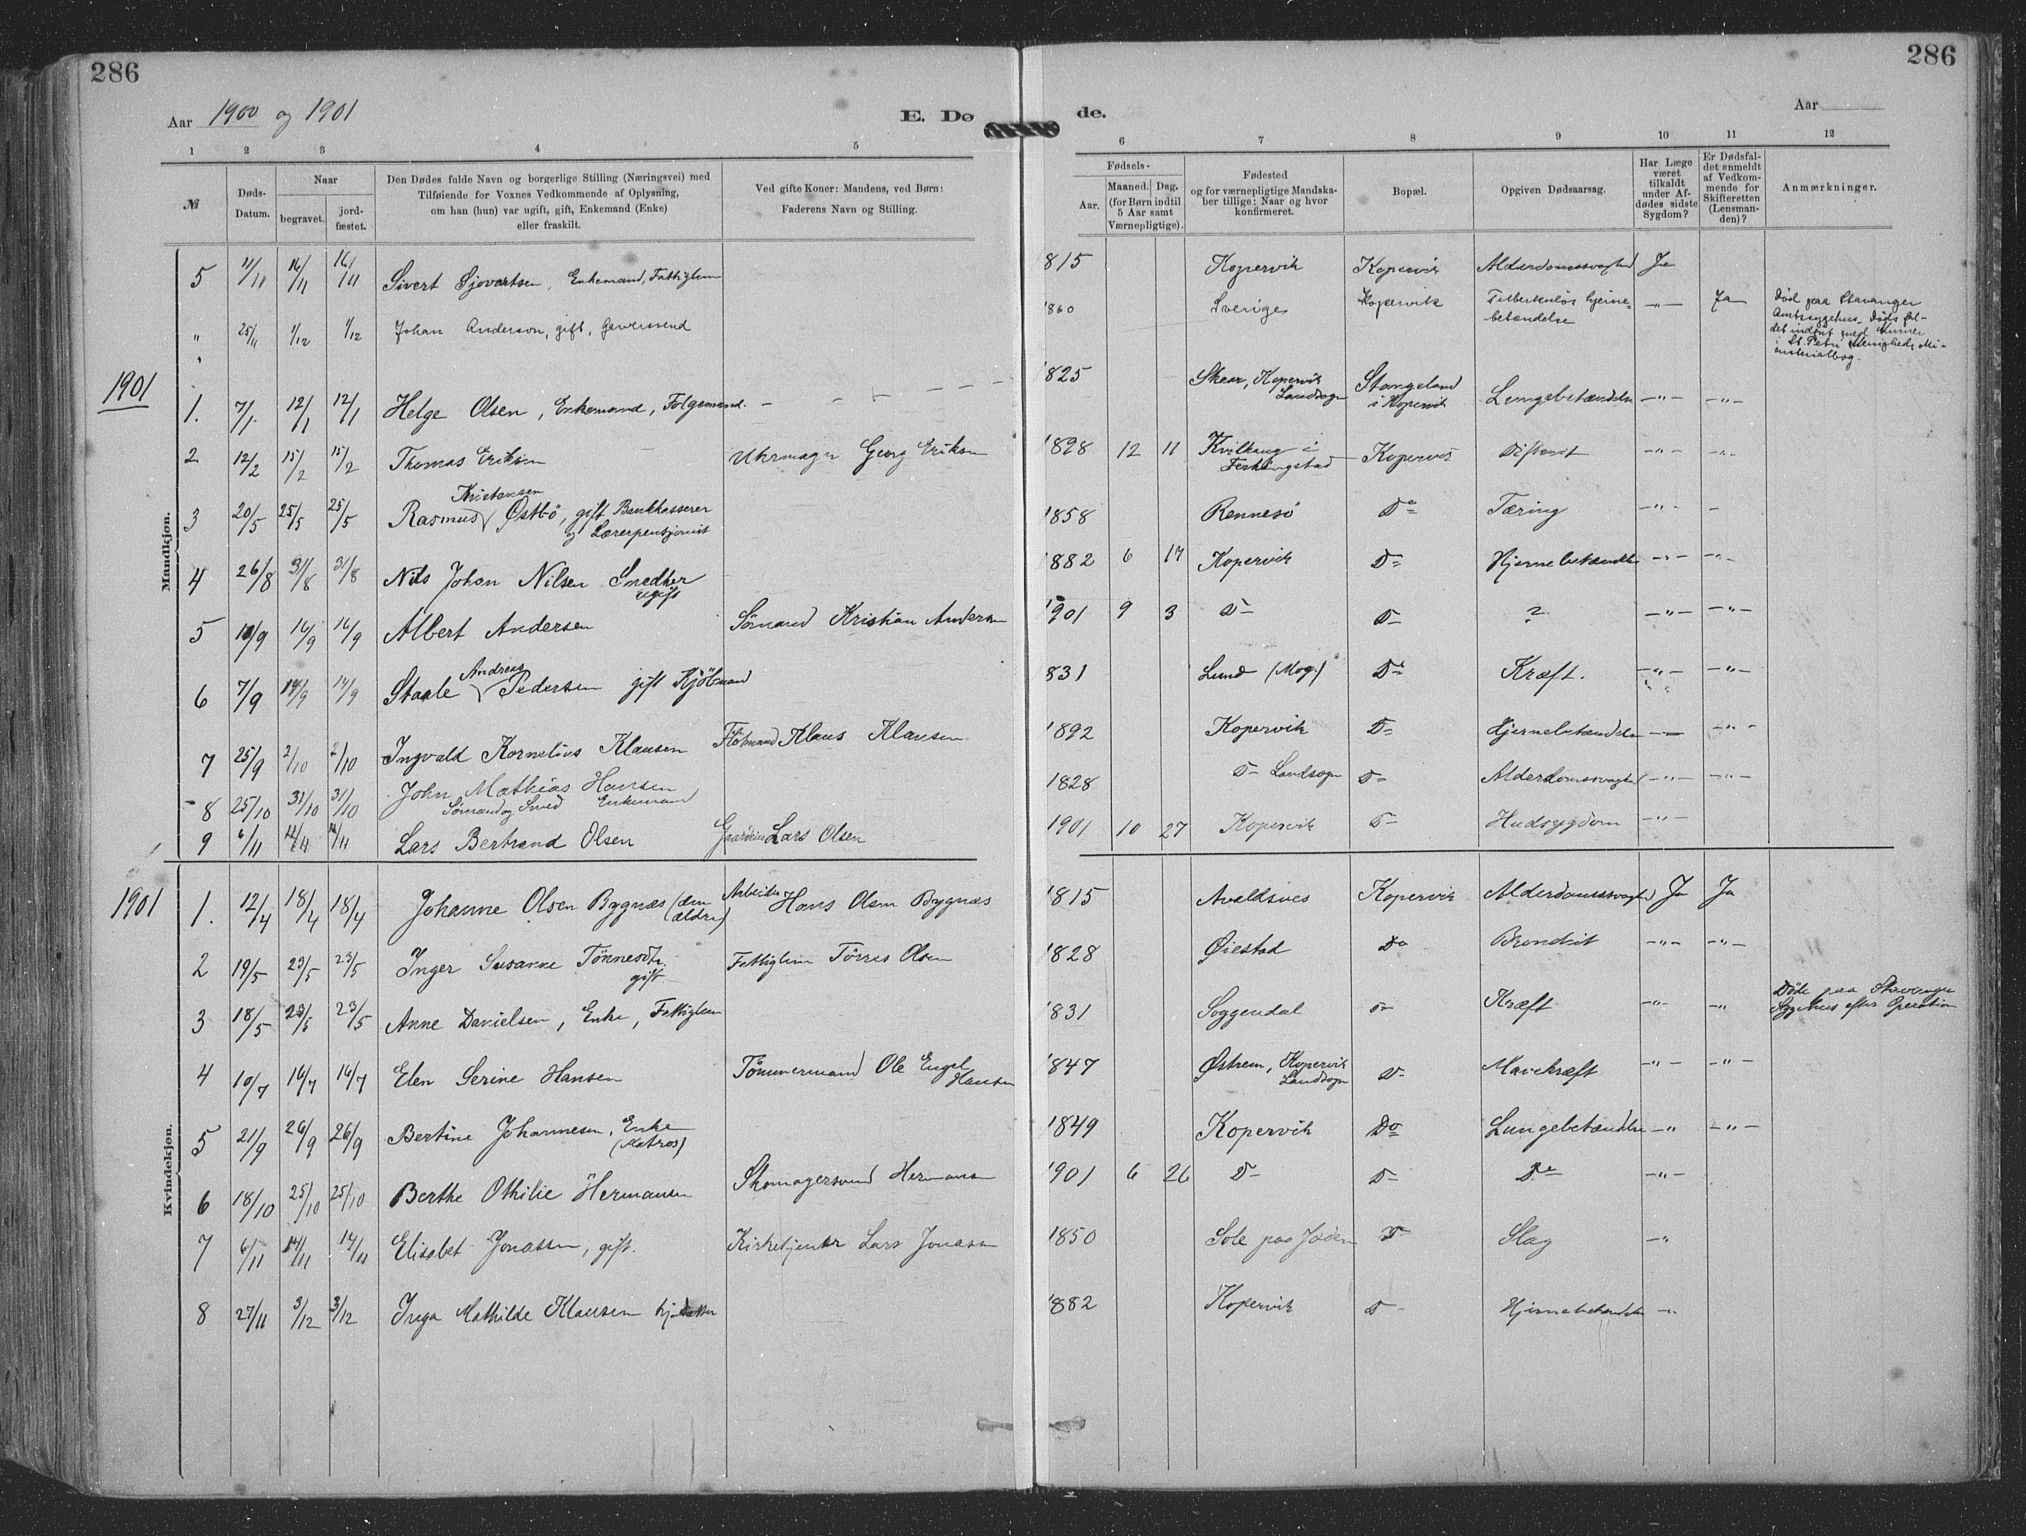 286
286
Aar 1900 og 1901
E. Dø
de.
Aar
1 2 3 4 5 6 7 8 9 10 11 12
№ Døds-Datum. Naar begravet. jord-fæstet. Den Dødes fulde Navn og borgerlige Stilling (Næringsvei) med Tilføiende for Voxnes Vedkommende af Oplysning, om han (hun) var ugift, gift, Enkemand (Enke) eller fraskilt. Ved gifte Koner: Mandens, ved Børn: Faderens Navn og Stilling. Fødsels- Aar. Maaned. Dag. (for Børn indtil 5 Aar samt Værnepligtige). Fødested og for værnepligtige Mandskaber tillige: Naar og hvor konfirmeret. Bopæl. Opgiven Dødsaarsag. Har Læge været tilkaldt under Afdødes sidste Sygdom? Er Dødsfaldet anmeldt af Vedkommende for Skifteretten (Lensmanden)? Anmærkninger.
Mandkjøn.
5 11/11 16/11 16/11 Sivert Sjovartsen, Enkemand, Fattiglem 1815 Kopervik Kopervik Alderdomssvaghed Ja
" 25/11 1/12 1/12 Johan Anderson, gift, 1860 Sverige Kopervik Tuberkuløs hjerne-betændelse -"- Ja Død paa Stavanger Amtssygehus.
1901
1. 7/1 12/1 12/1 Helge Olsen, Enkemand, Følgemand. 1825 Skear, Kopervik Landsogn Stangeland i Kopervik Lungebetændelse -"- -"-
2 12/2 15/2 15/2 Thomas Eriksen Uhrmager Georg Eriksen 1898 12 11 Kvilhaug i Ferkingstad Kopervik Difterit -"- -"-
3 20/5 25/5 25/5 Rasmus Kristensen Østbö, gift Bankkasserer og Lærerpensjonist 1858 Rennesö Do Tæring -"- -
4 26/8 31/8 31/8 Nils Johan Nilsen Snedker ugift 1882 6 17 Kopervik Do Hjernebetændelse -"- -"-
5 10/9 16/9 16/9 Albert Andersen Sömand Kristian Andersen 1901 9 3 Do Do ? -"- -"-
6 7/9 14/9 14/9 Staale Andreas Pedersen gift Kjöbmand 1831 Lund (Mog.) Do Kræft. -"- -"-
7 25/9 2/10 2/10 Ingvald Kornelius Klausen Klaus Klausen 1892 Kopervik Do Hjernebetændelse -"- -"-
8 25/10 31/10 31/10 John Mathias Hansen Sömand og Smed Enkemand 1828 Do Landsogn Do Alderdomssvaghed -"- -"-
9 6/11 12/11 12/11 Lars Bertrand Olsen Lars Olsen 1901 10 27 Kopervik Do Hudsygdom -"-
Kvindekjøn.
1901
1. 12/4 18/4 18/4 Johanne Olsen Bygnæs (den ældre) Arbeider Hans Olsen Bygnæs 1815 Avaldsnes Kopervik Alderdomssvaghed Ja Ja
2 19/5 23/5 23/5 Inger Susanne Tönnesdtr. gift Fattiglem Törres Olsen 1828 Øiestad Do Brondkit -"- -"-
3 18/5 23/5 23/5 Anne Danielsen, Enke, Fattiglem 1831 Soggendal Do Kræft -"- " Döde paa Stavanger Sygehus efter Operation
4 10/7 16/7 16/7 Elen Serine Hansen Tömmermand Ole Engel Hansen 1847 Østrem, Kopervik Landsogn Do Mavekræft -"- -"-
5 21/9 26/9 26/9 Bertine Johannesen, Enke (Matros) 1849 Kopervik Do Lungebetændelse -" -"-
6 18/10 25/10 25/10 Berthe Othilie Hermansen Skomagersvend Hermansen 1901 6 26 Do Do Do -"-
7 6/11 14/11 14/11 Elisabet Jonassen, gift. Kirketjener Lars Jonassen 1850 Sole paa Jæderen Do Slag -"
8 27/11 3/12 3/12 Inga Mathilde Klausen 1882 Kopervik Do Hjernebetændelse -"-